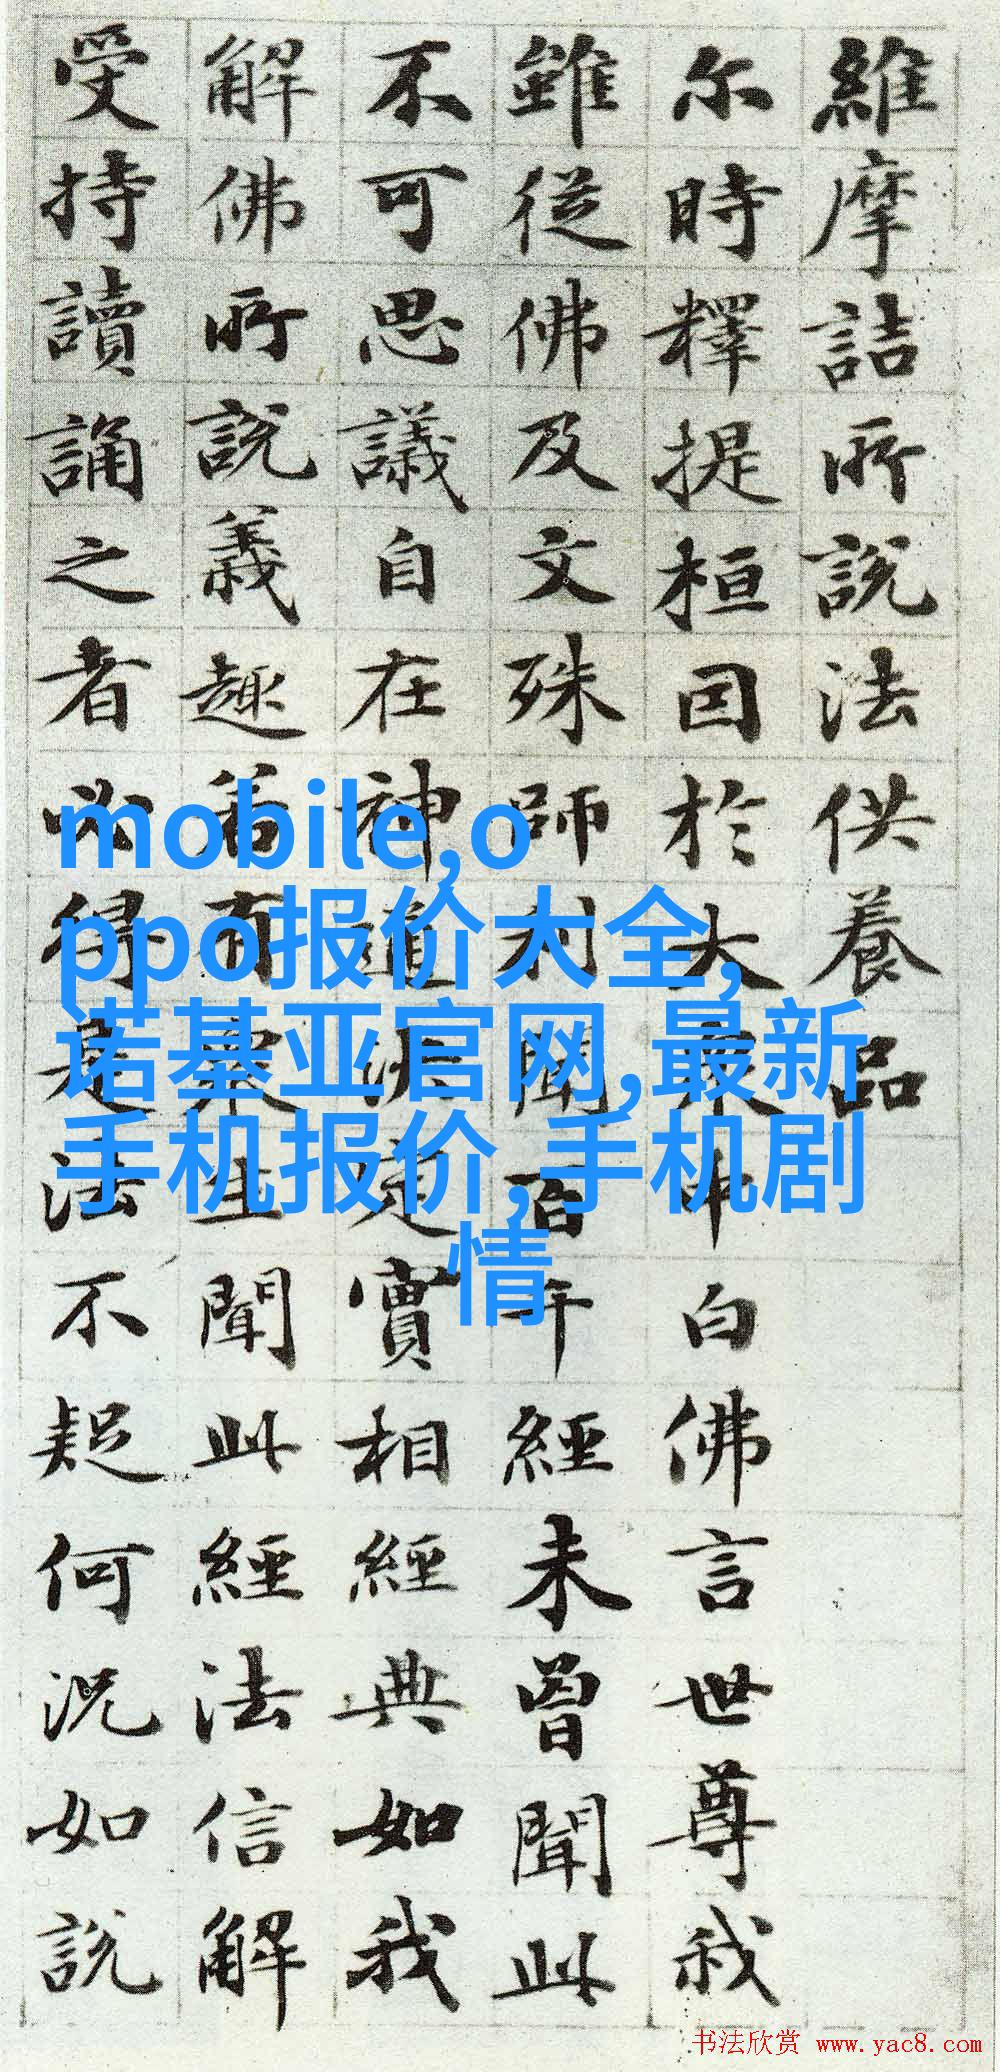 維摩詰所說法供養品
尔時釋提桓因於大衆中白佛言世尊我
雖從佛及文殊師利聞百千經未曾聞此
不可思議自在神通決定實相經典如我
解佛所說義趣若有衆生聞此經法信解
受持讀誦之者必得是法不疑何況如說
mobile,o
ppo报价大全,
诺基亚官网,最新
手机报价,手机剧
情
书法欣赏 www.yac8.com